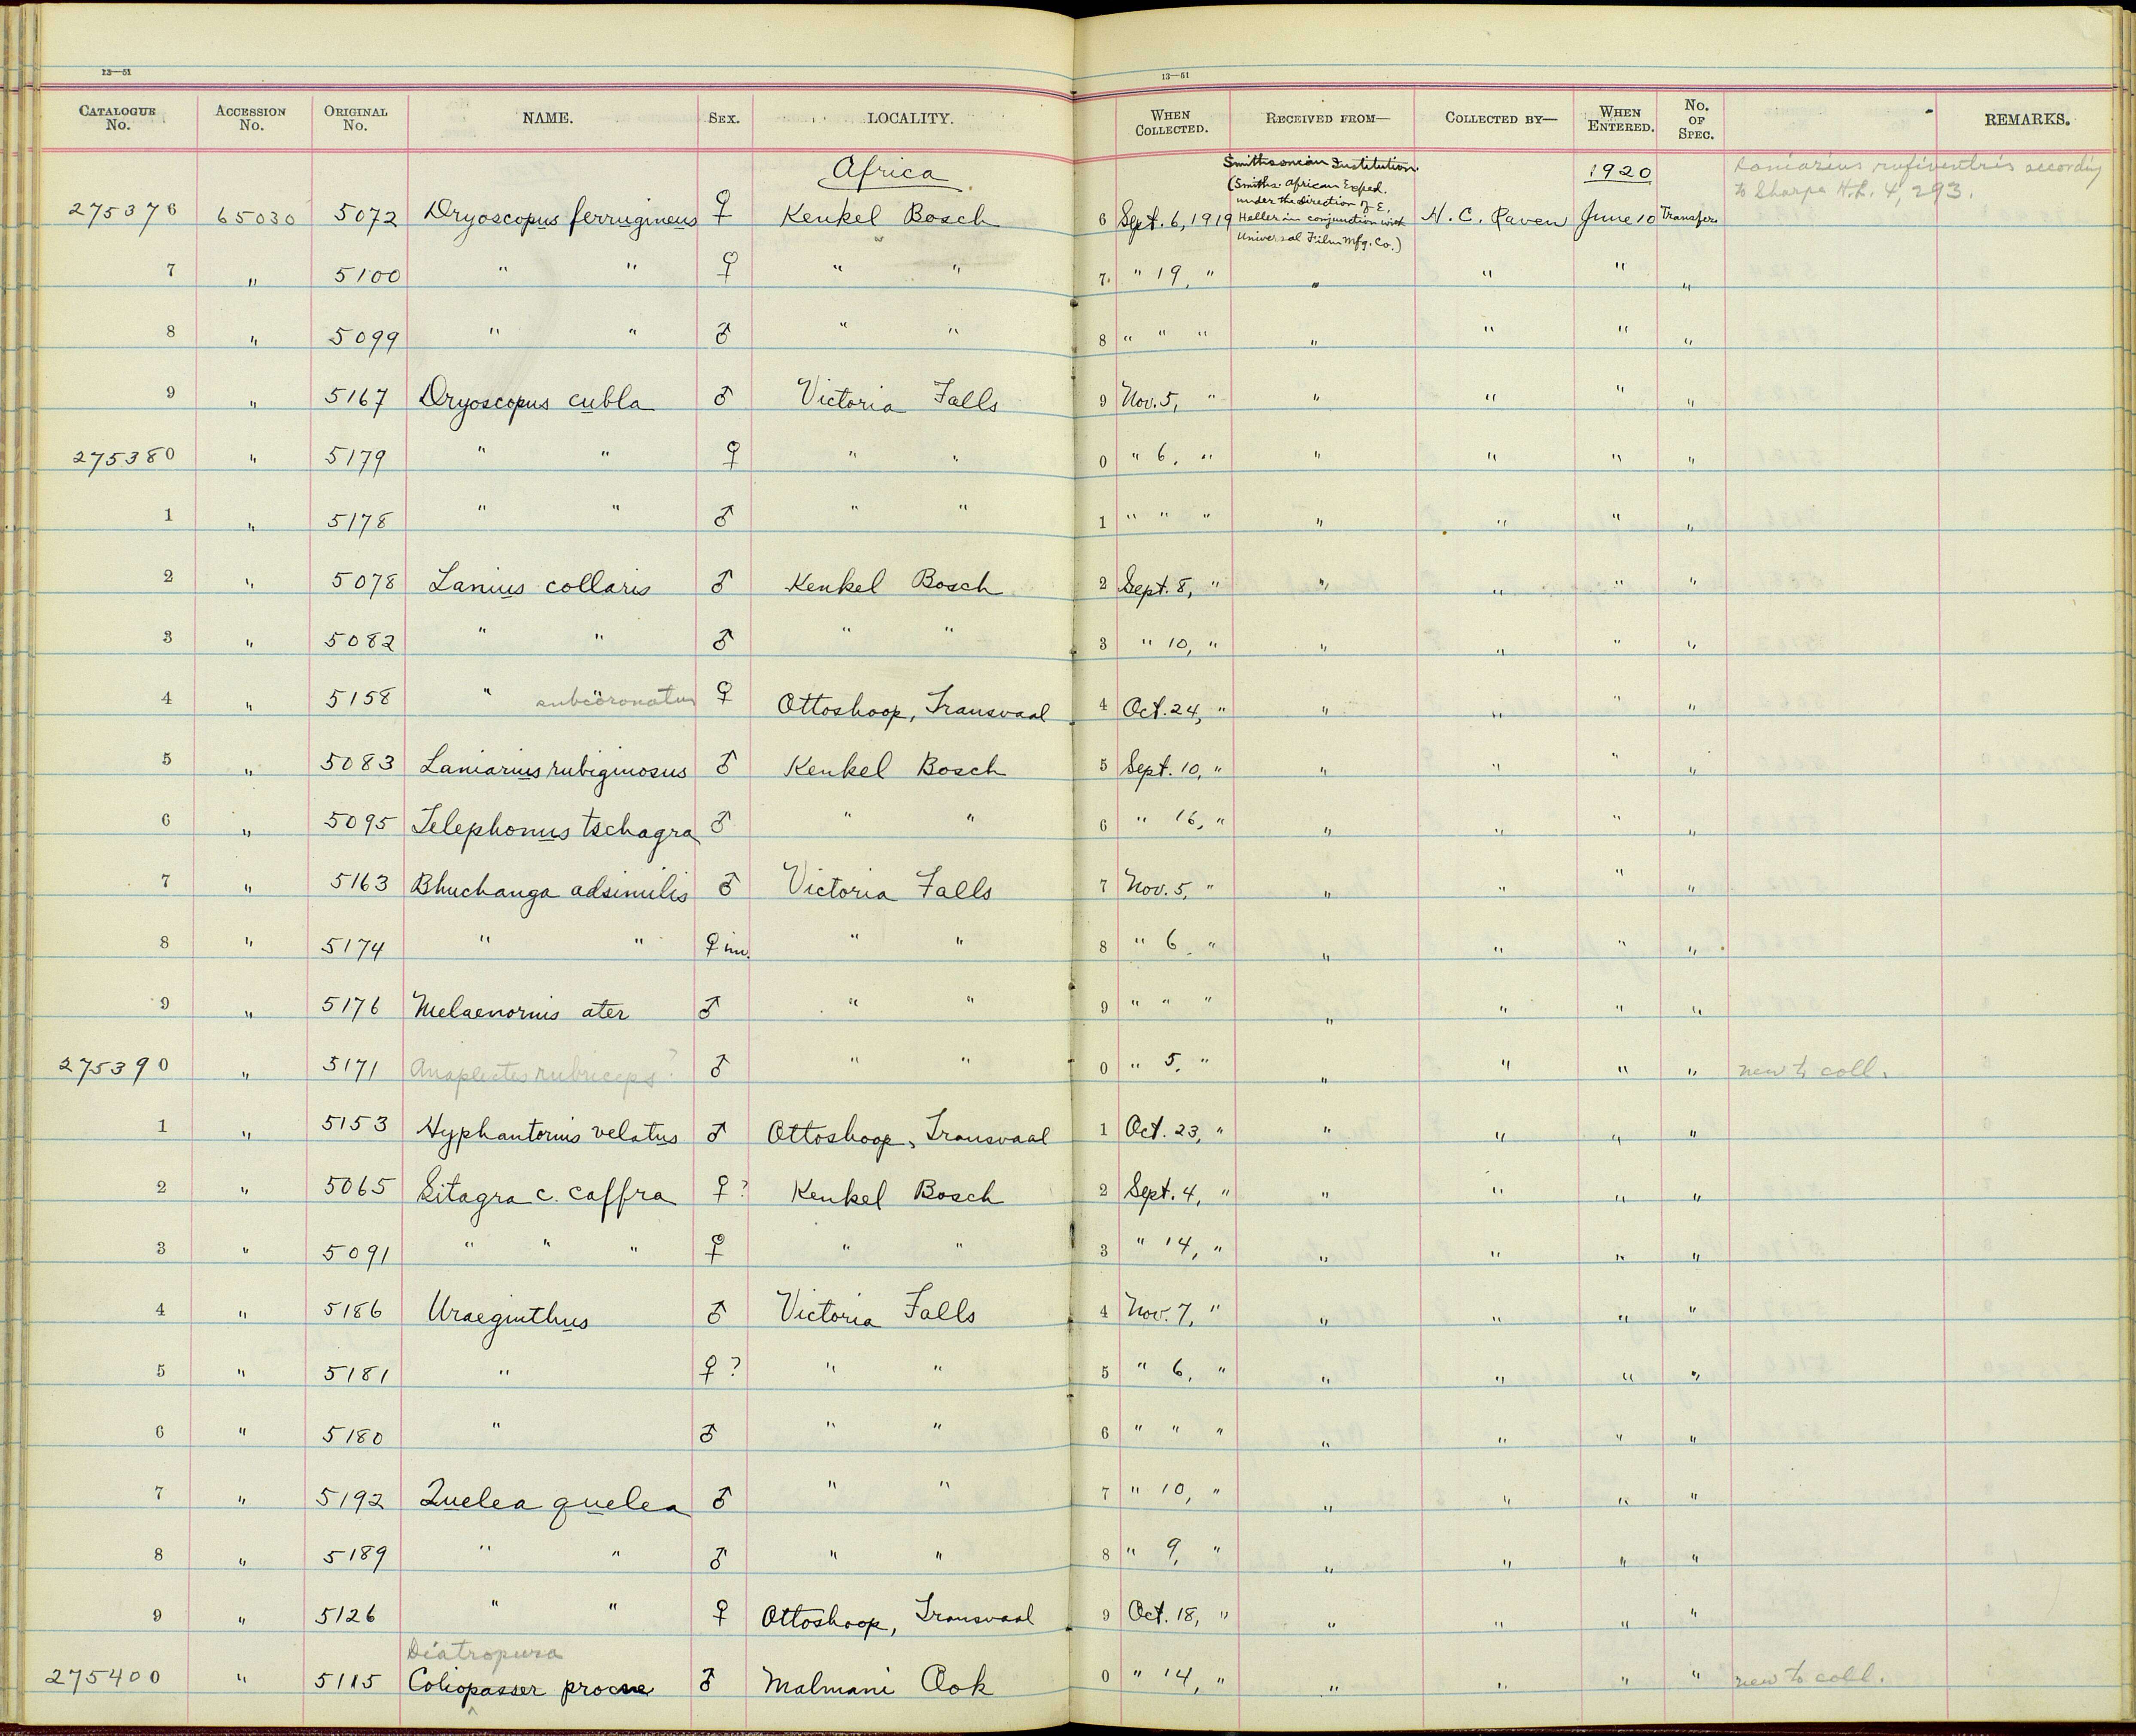 13—51
13—51
CATALOGUE No. ACCESSION No. ORIGINAL No. NAME. SEX. LOCALITY. WHEN COLLECTED. RECEIVED FROM— COLLECTED BY— WHEN ENTERED. No. OF SPEC. REMARKS.
Africa Smithsonian Institution 1920 Laniarius rufiventris according
(Smiths. African Exped. to Sharpe H.L. 4, 293.
under the direction of E.
275376 65030 5072 Dryoscopus ferrugineus ♀ Kenkel Bosch 6 Sept. 6, 1919 Heller in conjunction with H. C. Raven June 10 Transfer
Universal Film Mfg. Co.)
7 " 5100 " " ♀ " " 7 " 19, " " " " "
8 " 5099 " " ♂ " " 8 " " " " " " "
9 " 5167 Dryoscopus cubla ♂ Victoria Falls 9 Nov. 5, " " " " "
275380 " 5179 " " ♀ " " 0 " 6, " " " " "
1 " 5178 " " ♂ " " 1 " " " " " " "
2 " 5078 Lanius collaris ♂ Kenkel Bosch 2 Sept. 8, " " " " "
3 " 5082 " " ♂ " " 3 " 10, " " " " "
4 " 5158 " subcoronatus ♀ Ottoshoop, Transvaal 4 Oct. 24, " " " " "
5 " 5083 Laniarius rubiginosus ♂ Kenkel Bosch 5 Sept. 10, " " " " "
6 " 5095 Telephonus tschagra ♂ " " 6 " 16, " " " " "
7 " 5163 Bhuchanga adsimilis ♂ Victoria Falls 7 Nov. 5, " " " " "
8 " 5174 " " ♀ im. " " 8 " 6, " " " " "
9 " 5176 Melaenornis ater ♂ " " 9 " " " " " " "
275390 " 5171 Anaplectes rubriceps? ♂ " " 0 " 5, " " " " " new to coll.
1 " 5153 Hyphantornis velatus ♂ Ottoshoop, Transvaal 1 Oct. 23, " " " " "
2 " 5065 Sitagra c. caffra ♀? Kenkel Bosch 2 Sept. 4, " " " " "
3 " 5091 " " " ♀ " " 3 " 14, " " " " "
4 " 5186 Uraeginthus ♂ Victoria Falls 4 Nov. 7, " " " " "
5 " 5181 " ♀? " " 5 " 6, " " " " "
6 " 5180 " ♂ " " 6 " " " " " " "
7 " 5192 Quelea quelea ♂ " " 7 " 10, " " " " "
8 " 5189 " " ♂ " " 8 " 9, " " " " "
9 " 5126 " " ♀ Ottoshoop, Transvaal 9 Oct. 18, " " " " "
Diatropura
275400 " 5115 Coliopasser procne ♂ Malmani Ook 0 " 14, " " " " " new to coll.